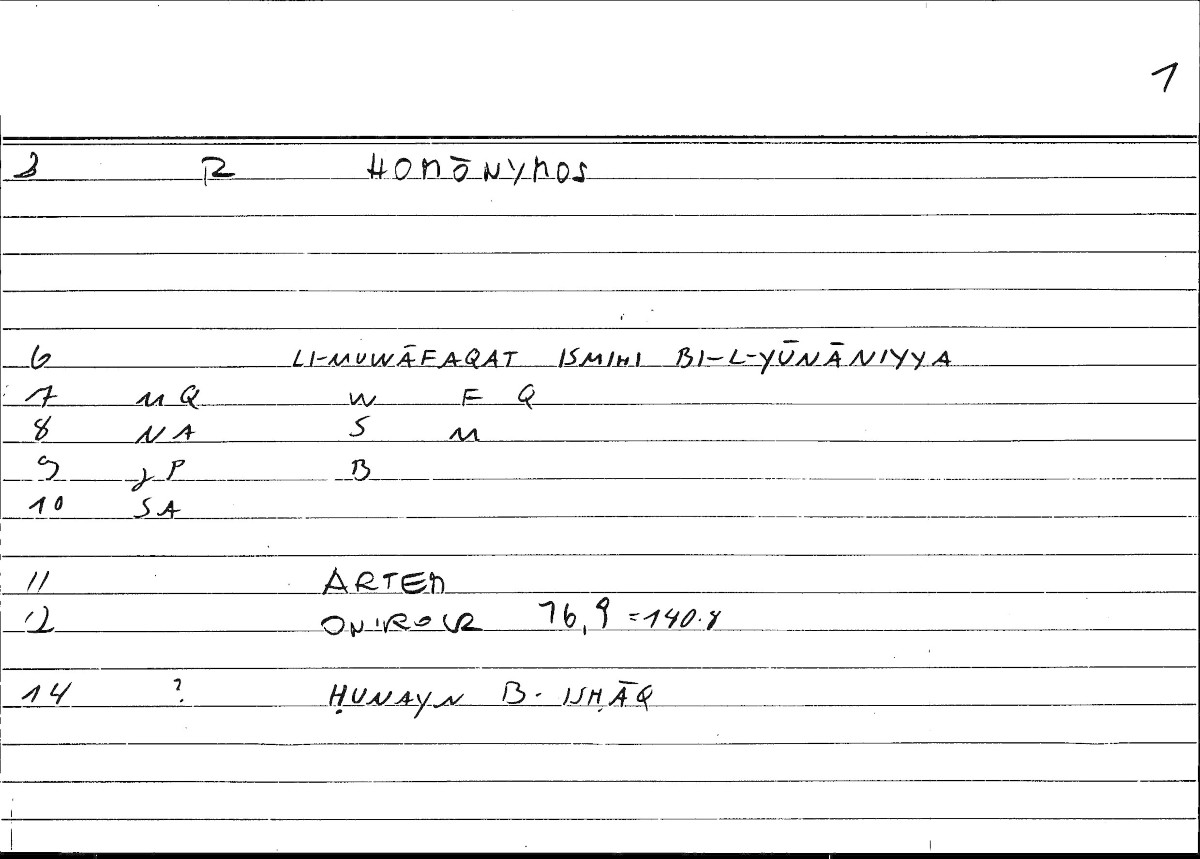 1
3 R HOMŌNYMOS
6 LI-MUWĀFAQAT ISMIHI BI-L-YŪNĀNIYYA
7 MQ W F Q
8 NA S M
9 P B
10 SA
11 ARTEM
12 ONIROCR 76,9 = 140.8
14 ? ḤUNAYN B. ISḤĀQ